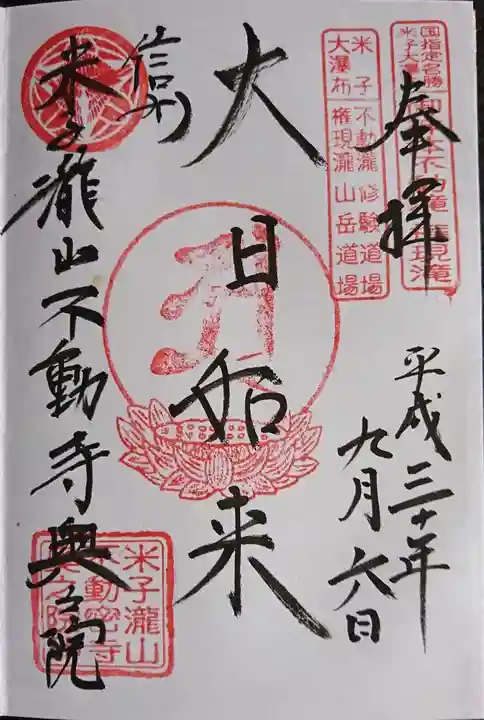 奉拝
平成三十年
九月六日
大日如来
信州
米子瀧山不動寺奥之院
国指定名勝
米子大瀑
権現滝
米子不動瀧修験道場
大瀑布権現瀧山岳道場
米子瀧山
不動密寺
奥之院